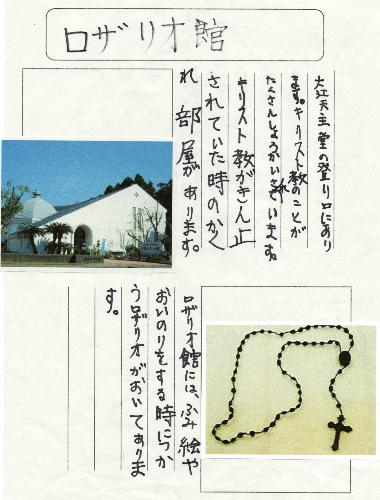 ロザリオ館
大江天主堂の登り口にあり
ます。キリスト教のことが
たくさんしょうかいされています。
キリスト教がきん止
されていた時のかく
れ部屋があります。
ロザリオ館には、ふみ絵や
おいのりをする時につか
うロザリオがおいてありま
す。